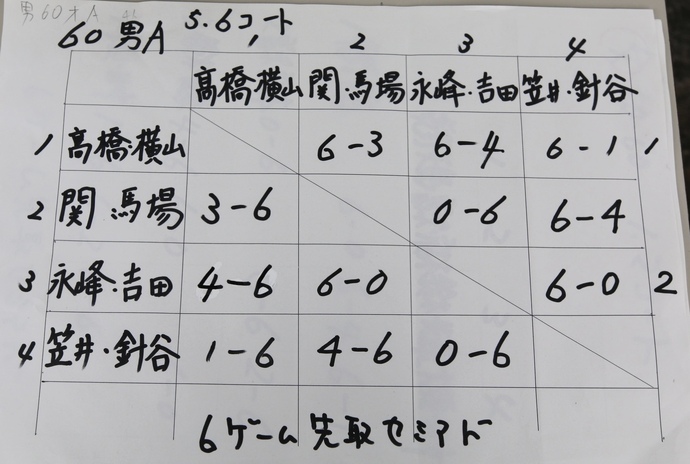 男60才A
60男A 5.6コート
1 2 3 4
高橋・横山 関・馬場 永峰・吉田 笠井・針谷
1 高橋・横山 6-3 6-4 6-1 1
2 関・馬場 3-6 0-6 6-4
3 永峰・吉田 4-6 6-0 6-0 2
4 笠井・針谷 1-6 4-6 0-6
6ゲーム先取セミアド